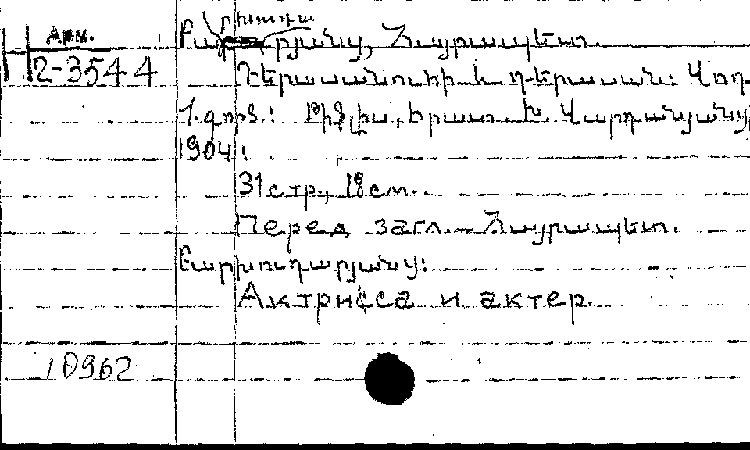 Арм.
2-3544
Բարխուդարյանց, Հայրապետ.
Դերասանուհի և դերասան: Վոդ.
1 գործ.: Թիֆլիս, Երաստ. Խ. Վարդանյանց
1904:
31 стр., 18 см.
Перед загл. — Հայրապետ.
Բարխուդարյանց:
Актрисса и актер.
10962